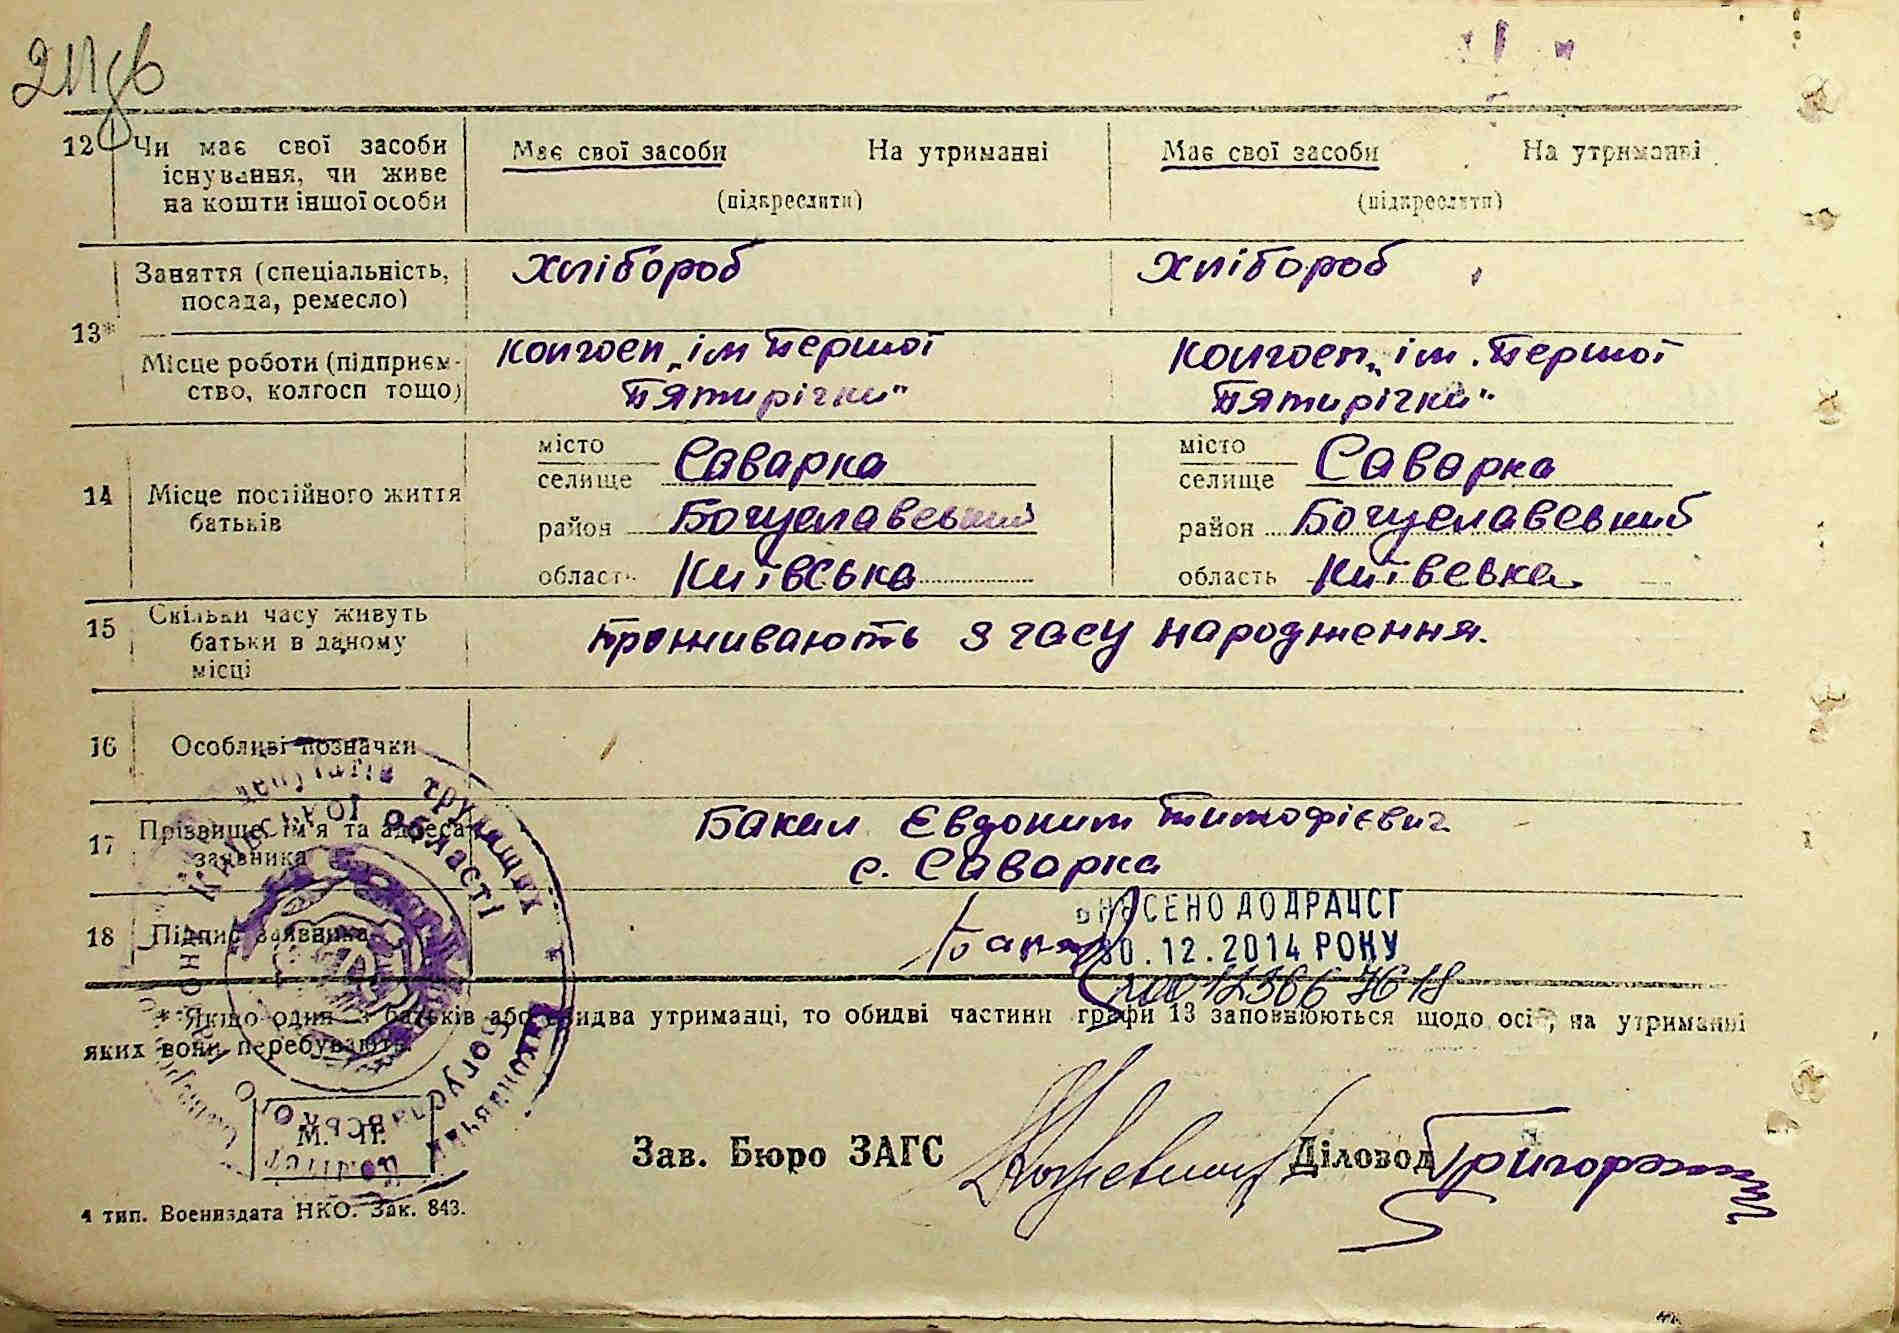 12 Чи має свої засоби Має свої засоби На утриманні Має свої засоби На утриманні
існування, чи живе
на кошти іншої особи (підкреслити) (підкреслити)
Заняття (спеціальність, Хлібороб Хлібороб
посада, ремесло)
13*
Місце роботи (підприєм- колгосп „ім Першої колгосп „ім. Першої
ство, колгосп тощо) Пятирічки" Пятирічки"
місто місто
селище Саварка селище Саварка
14 Місце постійного життя
батьків район Богуславський район Богуславський
область Київська область Київська
15 Скільки часу живуть
батьки в даному Проживають з часу народження.
місці
16 Особливі позначки
17 Прізвище, ім'я та адреса Бакал Євдоким Тимофієвич
заявника с. Саварка
18 Підпис заявника
ВНЕСЕНО ДО ДРАЦСГ
30.12.2014 РОКУ
* Якщо один з батьків або обидві утриманці, то обидві частини графи 13 заповнюються щодо осіб, на утриманні
яких вони перебувають.
депутатів трудящих
Київської області
Богуславського
М. П.
Зав. Бюро ЗАГС Діловод
4 тип. Воениздата НКО. Зак. 843.